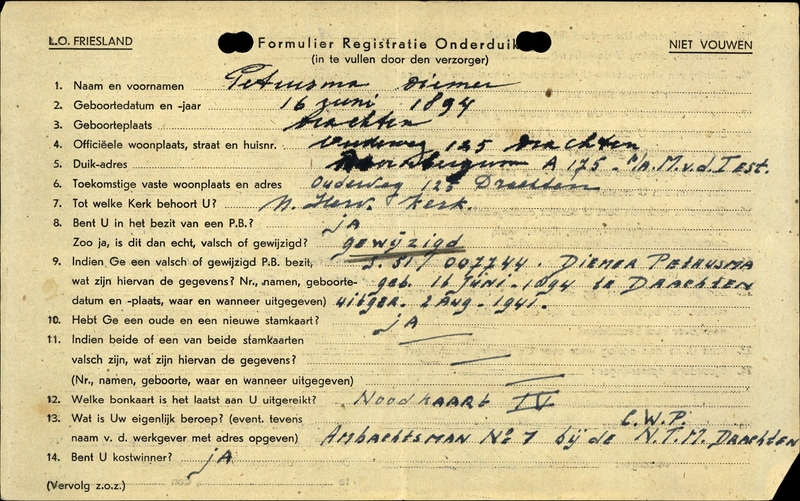 L.O. FRIESLAND
Formulier Registratie Onderduik
NIET VOUWEN
(in te vullen door den verzorger)
1. Naam en voornamen Petrusma Diemer
2. Geboortedatum en -jaar 16 juni 1894
3. Geboorteplaats Drachten
4. Officiëele woonplaats, straat en huisnr. Oudeweg 125 Drachten
5. Duik-adres A 175 - p/a. M.v.d. Iest.
6. Toekomstige vaste woonplaats en adres Oudeweg 125 Drachten
7. Tot welke Kerk behoort U? N. Herv. Kerk.
8. Bent U in het bezit van een P.B.? jA
Zoo ja, is dit dan echt, valsch of gewijzigd? gewijzigd
9. Indien Ge een valsch of gewijzigd P.B. bezit, S. 51/ 007744. Diemer Petrusma
wat zijn hiervan de gegevens? Nr., namen, geboorte- geb. 16 Juni - 1894 te Drachten
datum en -plaats, waar en wanneer uitgegeven) uitger. 2 Aug - 1941.
10. Hebt Ge een oude en een nieuwe stamkaart? jA
11. Indien beide of een van beide stamkaarten —
valsch zijn, wat zijn hiervan de gegevens? —
(Nr., namen, geboorte, waar en wanneer uitgegeven) —
12. Welke bonkaart is het laatst aan U uitgereikt? Noodkaart IV
13. Wat is Uw eigenlijk beroep? (event. tevens C.W.P.
naam v. d. werkgever met adres opgeven) Ambachtsman No 1 bij de N.T.M. Drachten
14. Bent U kostwinner? jA
(Vervolg z.o.z.)